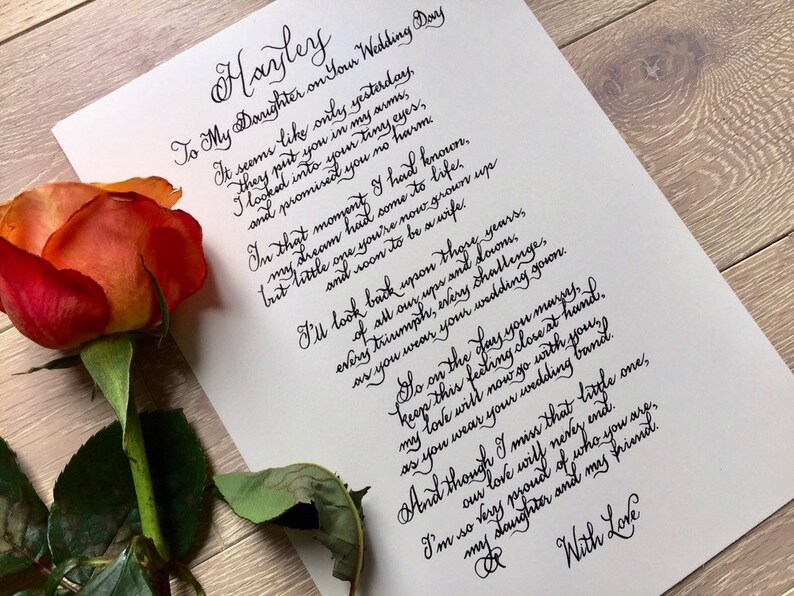 Hayley
To My Daughter on Your Wedding Day
It seems like only yesterday,
they put you in my arms,
I looked into your tiny eyes,
and promised you no harm.
In that moment I had known,
my dream had come to life,
but little one you're now grown up
and soon to be a wife.
I'll look back upon those years,
of all our ups and downs,
every triumph, every challenge,
as you wear your wedding gown.
So on the day you marry,
keep this feeling close at hand,
my love will now go with you,
as you wear your wedding band.
And though I miss that little one,
our love will never end.
I'm so very proud of who you are,
my daughter and my friend.
With Love